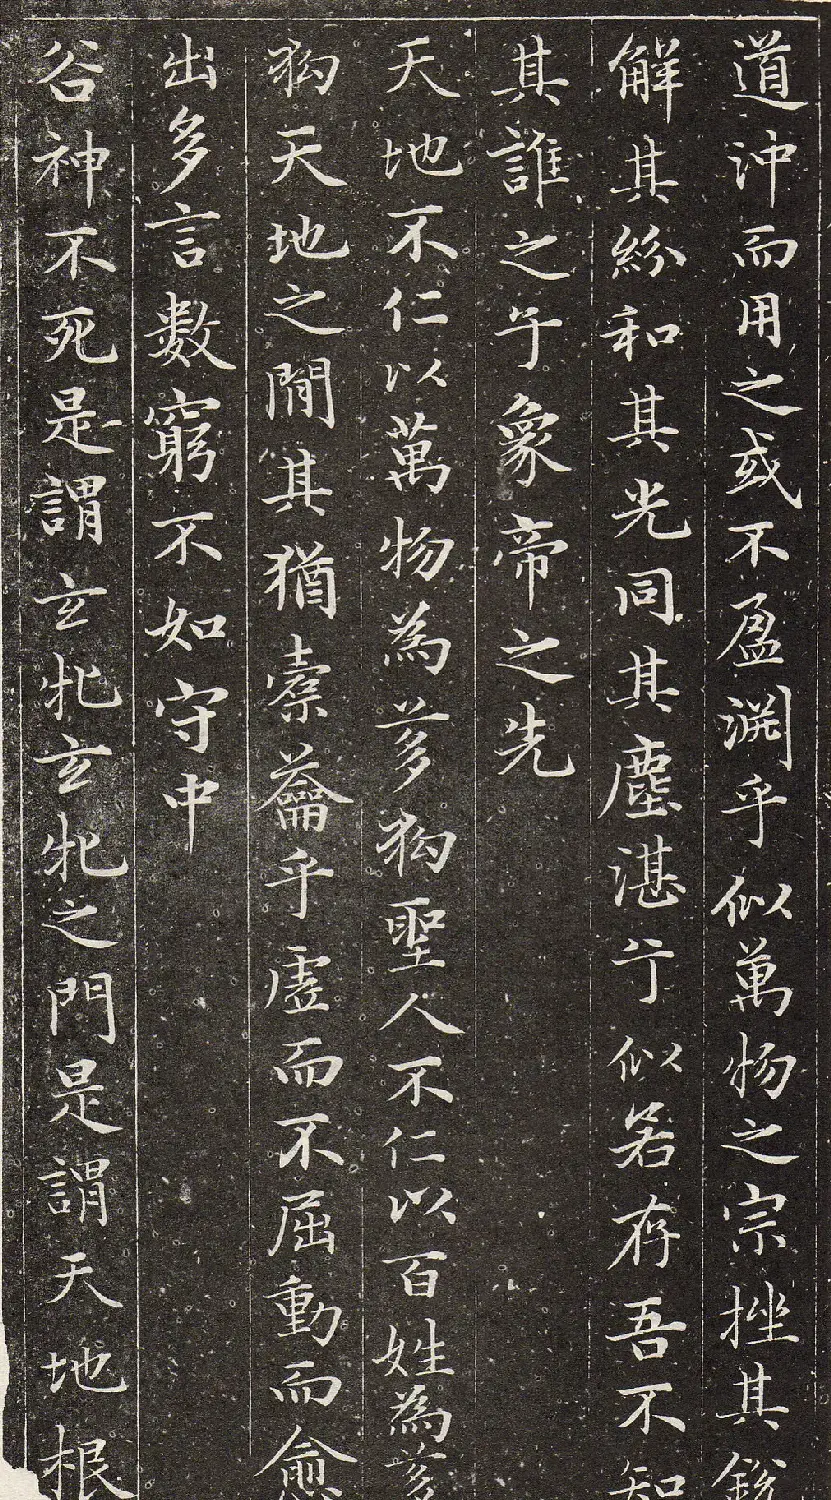 道沖而用之或不盈淵乎似萬物之宗挫其銳
解其紛和其光同其塵湛兮似若存吾不知
其誰之子象帝之先
天地不仁以萬物為芻狗聖人不仁以百姓為芻
狗天地之間其猶橐籥乎虛而不屈動而愈
出多言數窮不如守中
谷神不死是謂玄牝玄牝之門是謂天地根